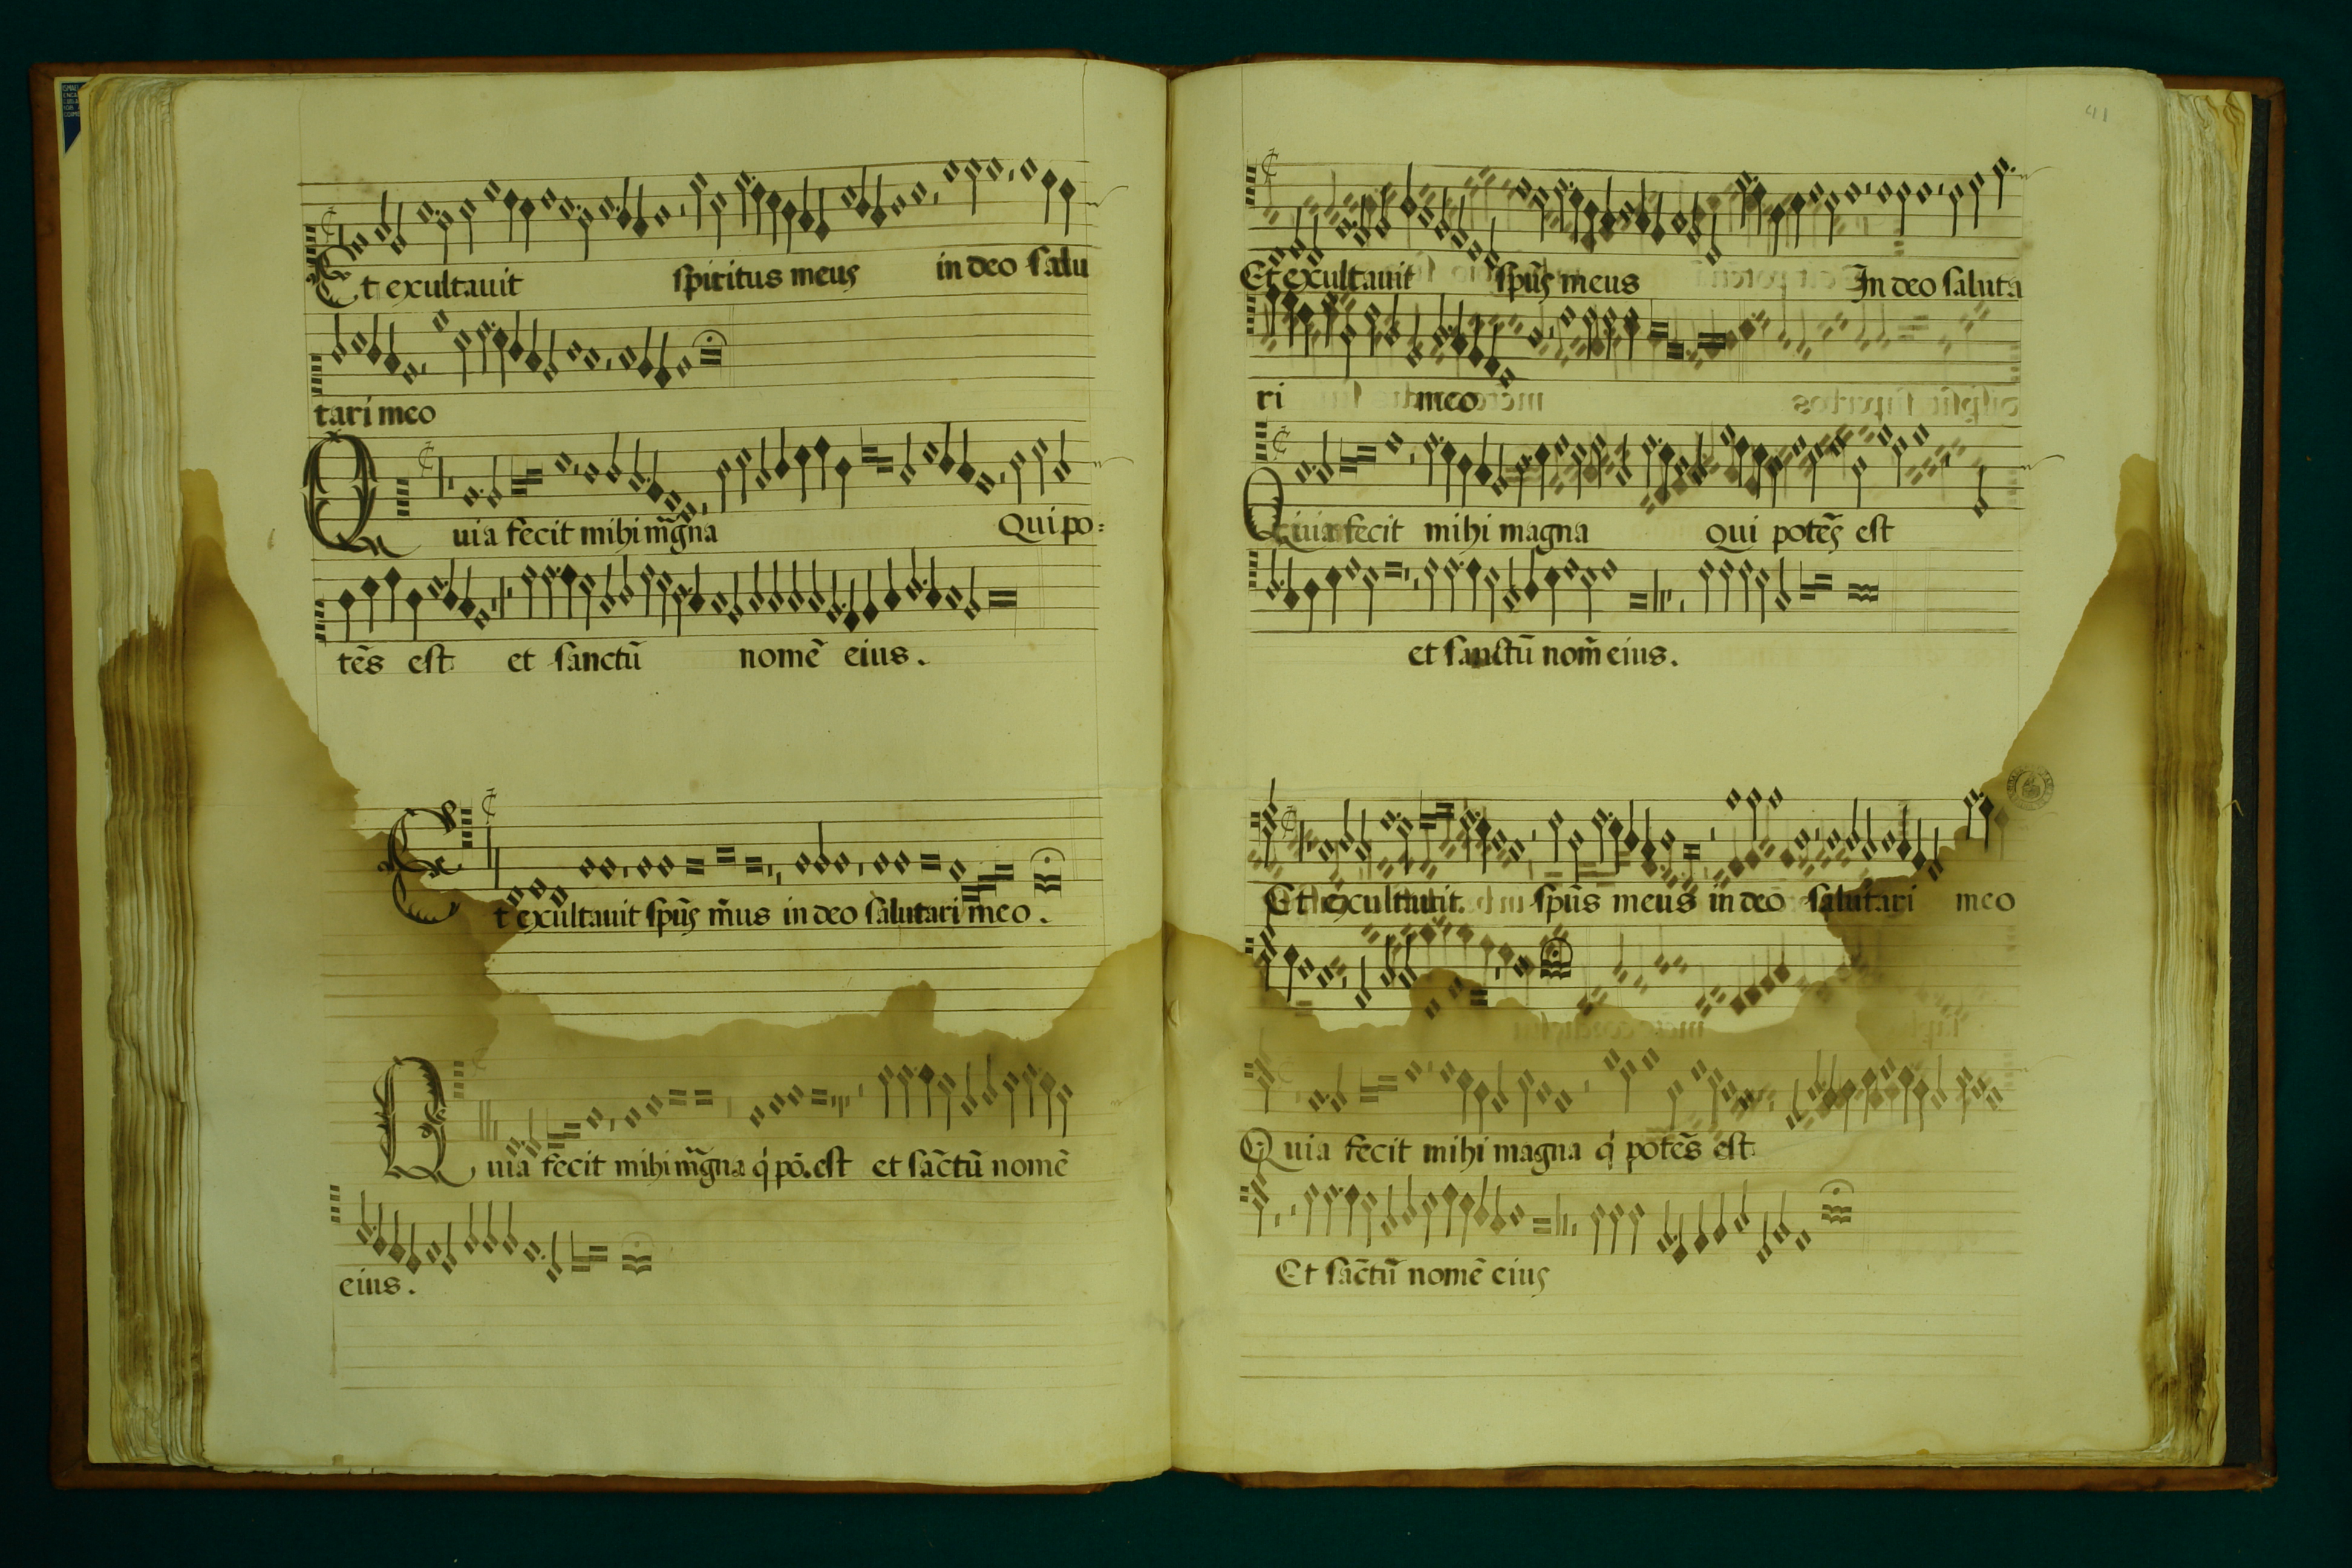 Et exultauit spiritus meus in deo salu
tari meo
Quia fecit mihi mg̃na Qui po:
tẽs est et sanctũ nomẽ eius.
Et exultauit spũs m̃us in deo salutari meo.
Quia fecit mihi mg̃na q̇ põ. est et sãctũ nomẽ
eius.
41
Et exultauit spũs meus In deo saluta
ri meo
Quia fecit mihi magna qui potẽs est
et sanctũ nom̃ eius.
Et exultauit spũs meus in deo salutari meo
Quia fecit mihi magna q̇ potẽs est
Et sãctũ nomẽ eius